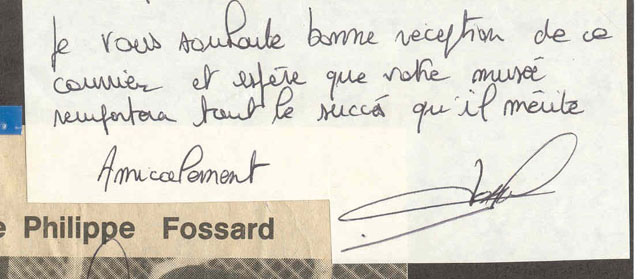 Je vous souhaite bonne réception de ce
courrier et espère que votre musée
remportera tout le succés qu'il mérite
Amicalement
e Philippe Fossard